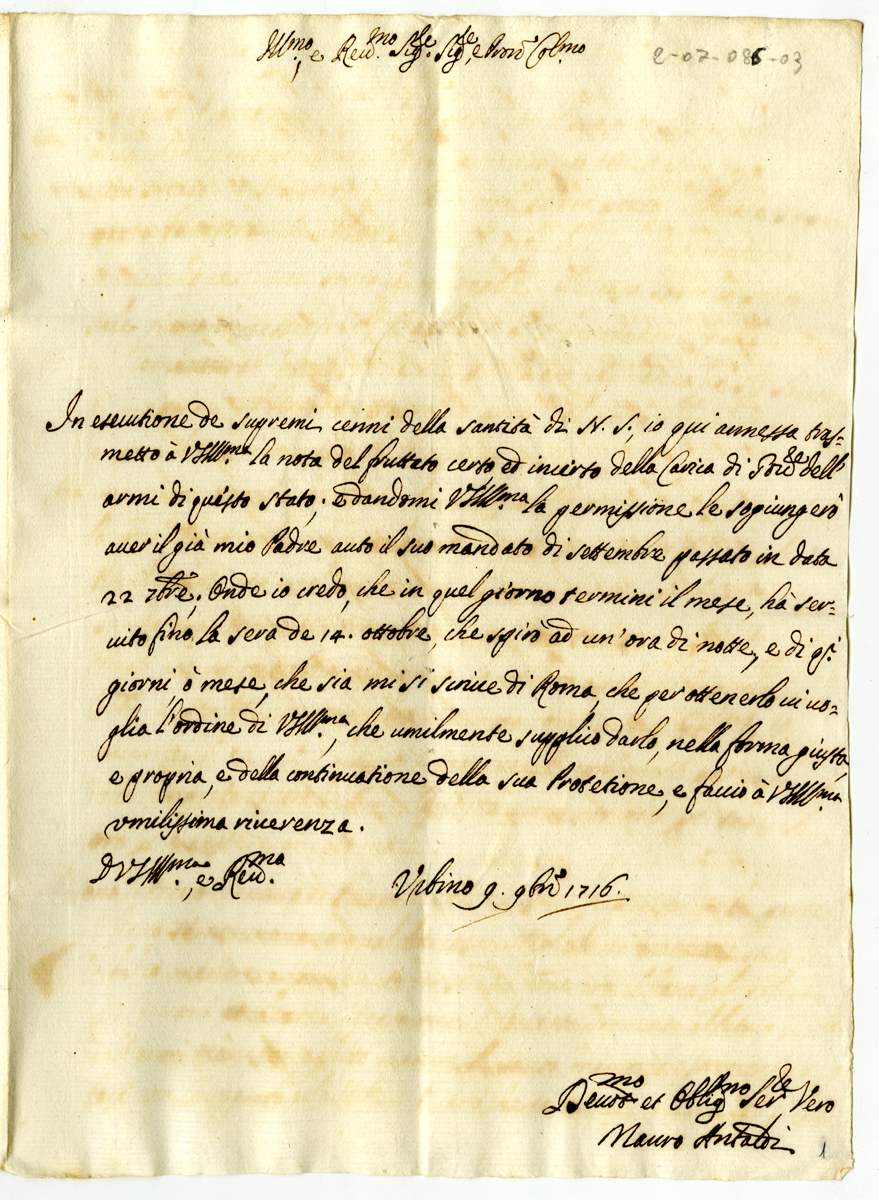 Ill.mo e Reu.mo Sig.re Sig.re, e Pron' Col.mo
2-07-086-03
In esecutione de supremi cenni della santità di N. S., io qui annessa tras-
metto à VSIll.ma la nota del fruttato certo ed incerto della Carica di dell'
armi di questo stato; e dandomi VSIll.ma la permissione le sogiungerò
auer il già mio Padre auto il suo mandato di settembre passato in data
22 7bre; Onde io credo, che in quel giorno termini il mese, hà ser-
uito fino la sera de 14. ottobre, che spirò ad un'ora di notte, e di q.ti
giorni, ò mese, che sia mi si scriue di Roma, che per ottenerlo ui uo-
glia l'ordine di VSIll.ma, che umilmente supplico darlo, nella forma giusta,
e propria, e della continuatione della sua Protetione, e faccio à VSIll.ma
vmilissima riuerenza.
D VSIll.ma, e Reu.ma
Urbino 9. 9bre 1716.
Deuot.mo et Oblig.mo Ser.re Vero
Mauro Antaldi
1